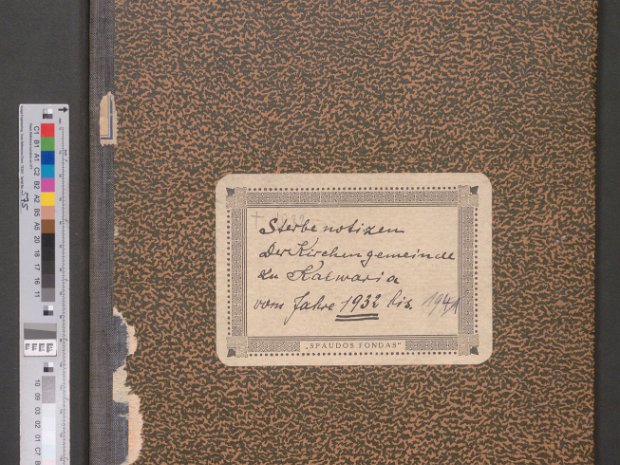 Sterbenotizen
Der Kirchengemeinde
zu Kalwaria
vom Jahre 1932 bis. 1941
„SPAUDOS FONDAS"
C1
B1
A1
C2
B2
A2
B5
A5
20
18
17
16
11
10
09
03
02
01
C7